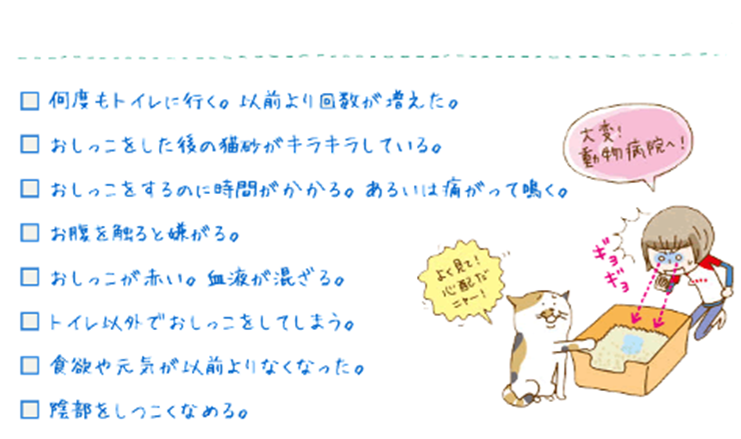 何度もトイレに行く。以前より回数が増えた。
おしっこをした後の猫砂がキラキラしている。
おしっこをするのに時間がかかる。あるいは痛がって鳴く。
お腹を触ると嫌がる。
おしっこが赤い。血液が混ざる。
トイレ以外でおしっこをしてしまう。
食欲や元気が以前よりなくなった。
陰部をしつこくなめる。
大変!
動物病院へ!
ギョ
ギョ
よく見て!
心配だ
ニャー!